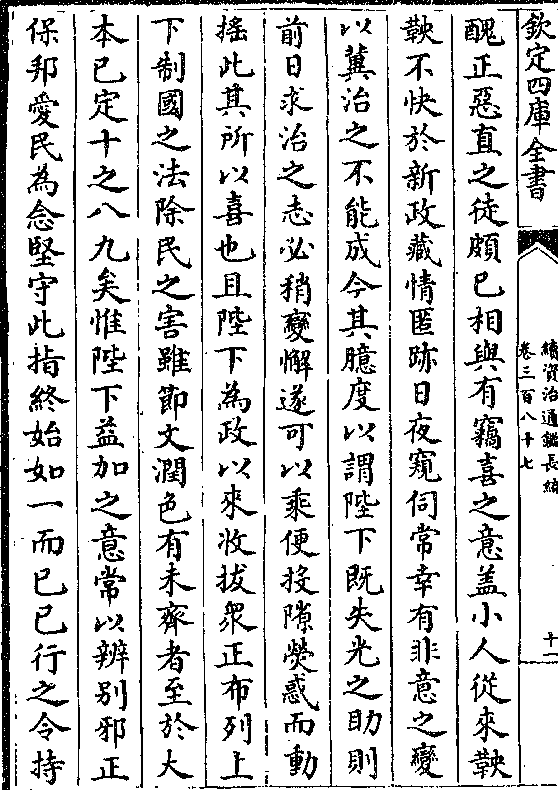 欽定四庫全書
續資治通鑑長編
卷三百八十七
十
醜正惡直之徒頗已相與有竊喜之意盖小人從來鞅
鞅不快於新政藏情匿跡日夜窺伺常幸有非意之變
以冀治之不能成今其臆度以謂陛下既失光之助則
前日求治之志必稍變懈遂可以乘便投隙熒惑而動
摇此其所以喜也且陛下為政以來收拔衆正布列上
下制國之法除民之害雖節文潤色有未齊者至於大
本已定十之八九矣惟陛下益加之意常以辨别邪正
保邦愛民為念堅守此指終始如一而已已行之令持